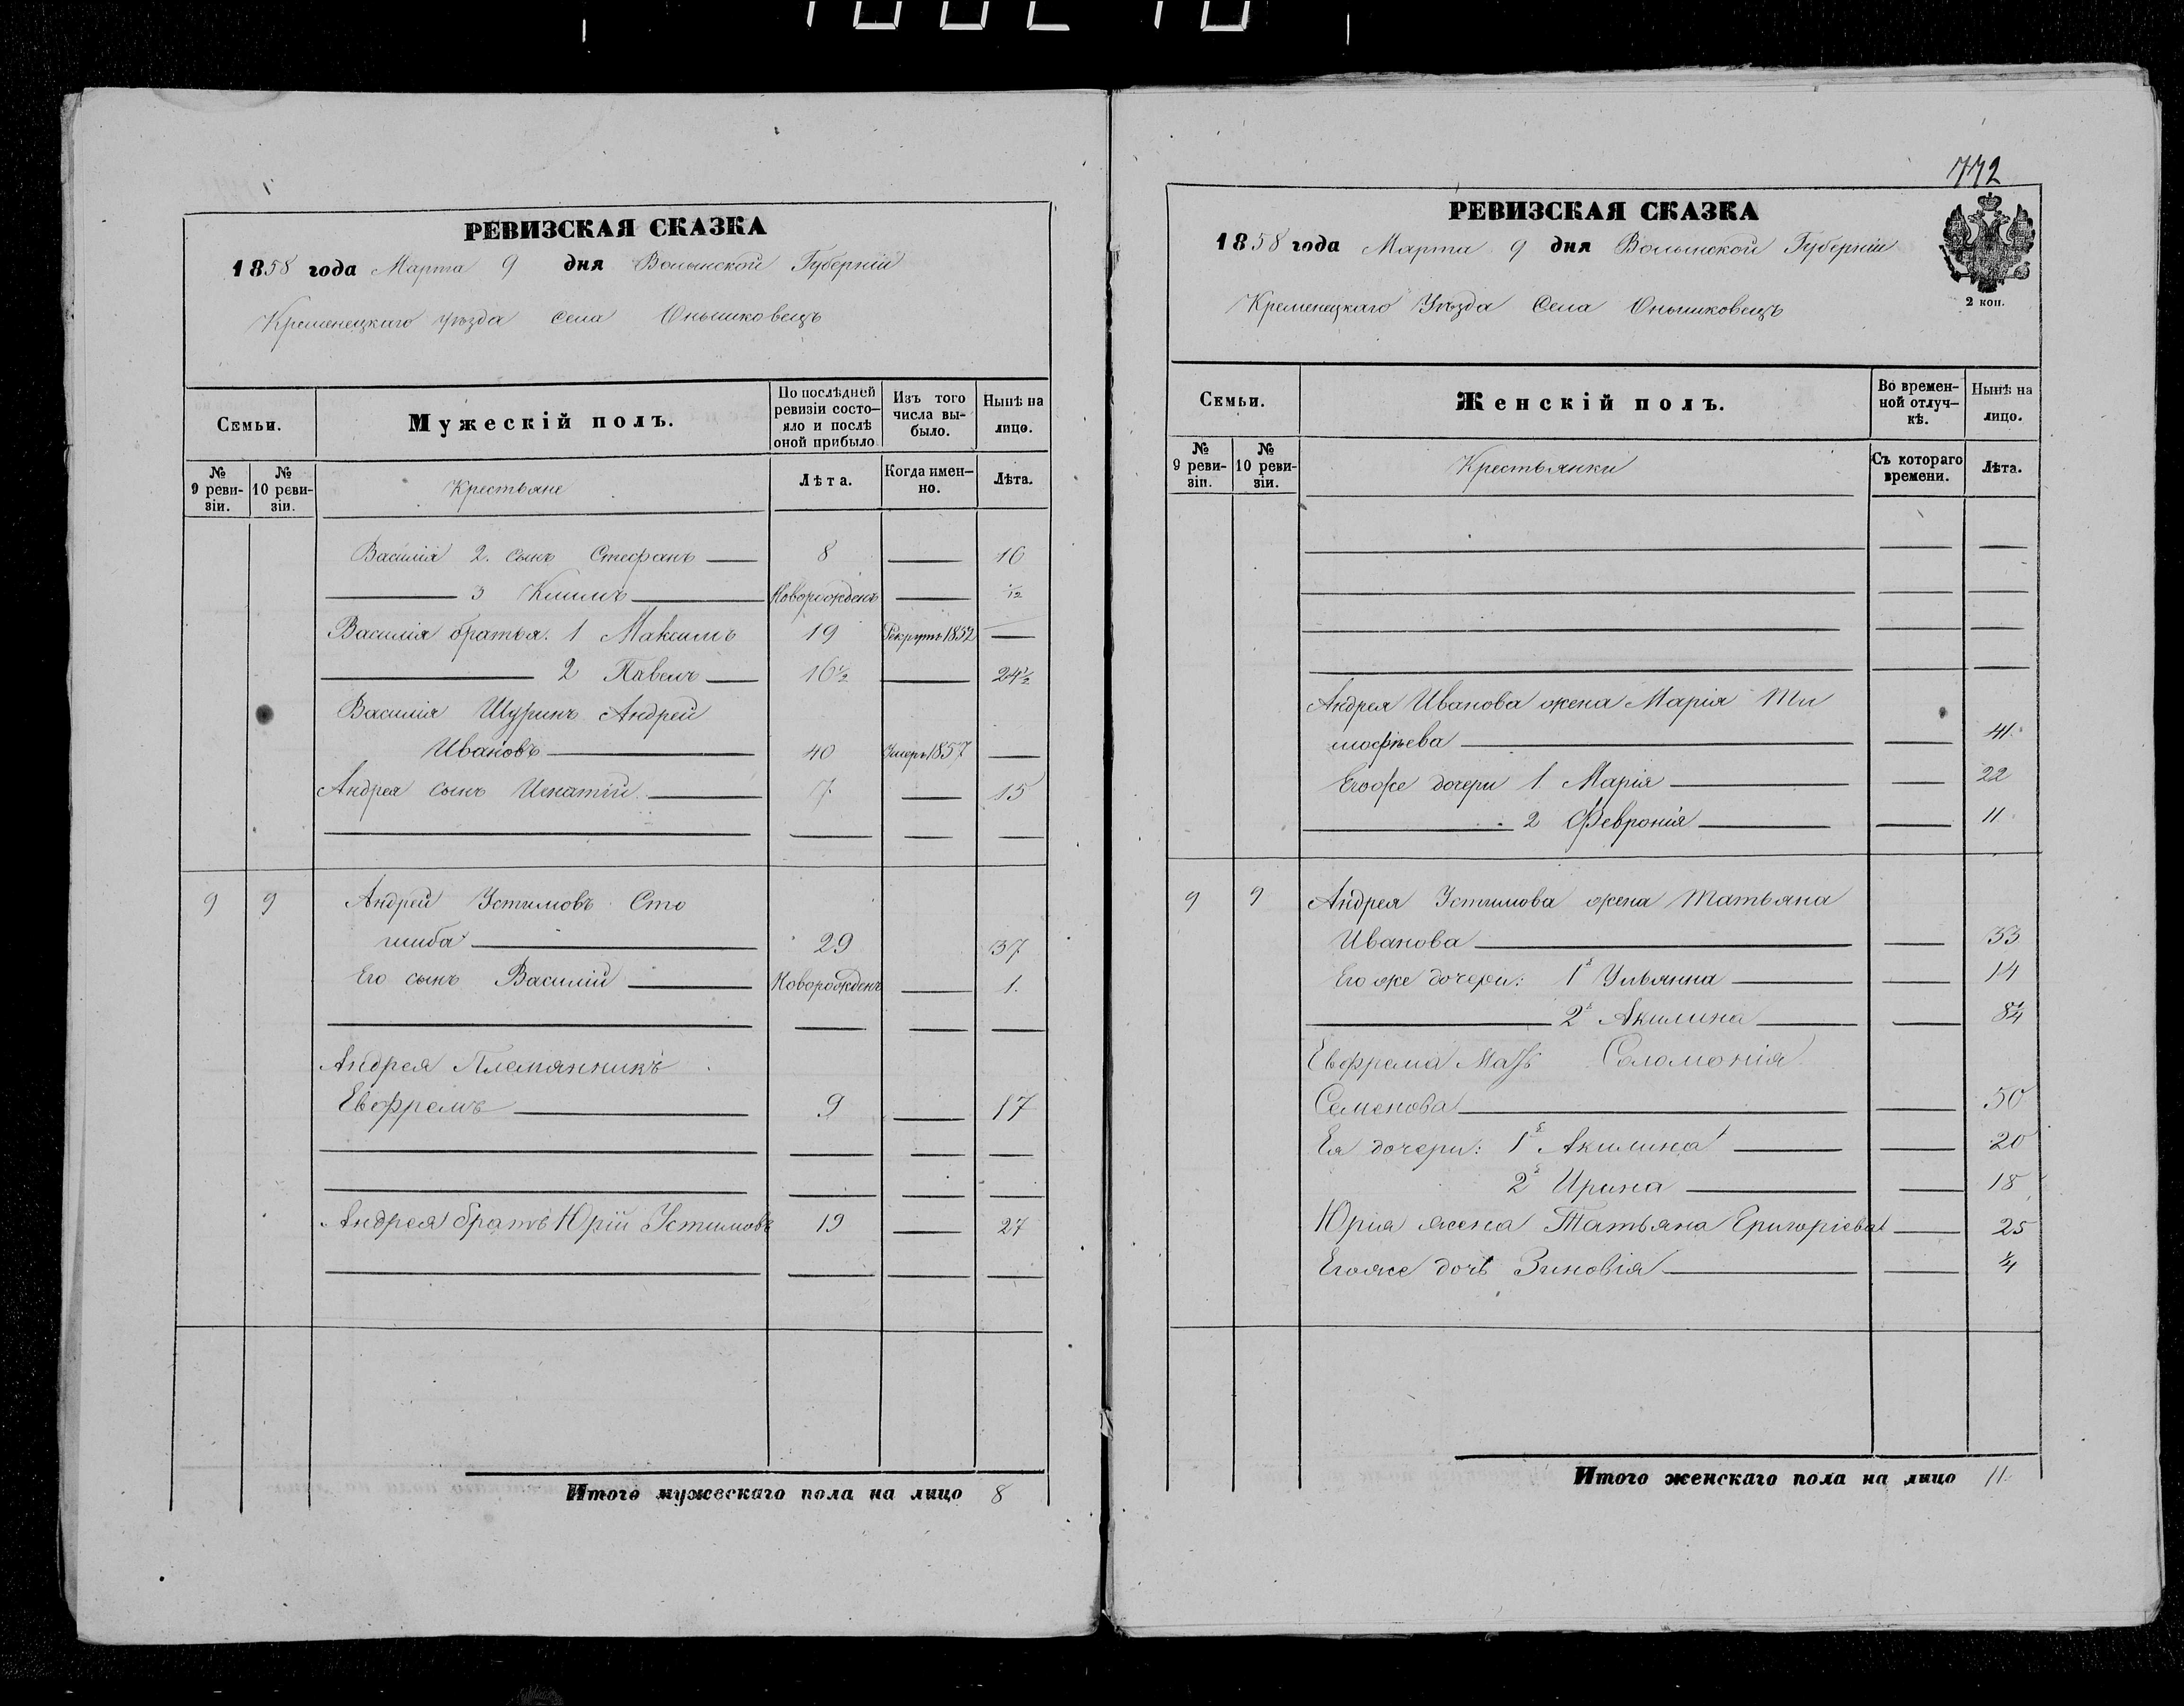 РЕВИЗСКАЯ СКАЗКА
1858 года Марта 9 дня Волынской Губерніи
Кременецкаго уѣзда села Онышковецъ
Семьи.
Мужескій полъ.
По послѣдней ревизіи состо-
яло и послѣ
оной прибыло
Изъ того
числа вы-
было.
Нынѣ на
лицо.
№
9 реви-
зіи.
№
10 реви-
зіи.
Крестьяне
Лѣта.
Когда имен-
но.
Лѣта.
Василія 2. сынъ Стефанъ 8 16
3 Климъ Новорожденъ 1/12
Василія братья. 1 Максимъ 19 Рекрутъ 1852
2 Павелъ 16½ 24½
Василія Шуринъ Андрей
Ивановъ 40 Умеръ 1857
Андрея сынъ Игнатій 7 15
9 9 Андрей Устимовъ Сто
шиба 29 37
Его сынъ Василій Новорожденъ 1.
Андрея Племянникъ
Евфремъ 9 17
Андрея братъ Юрій Устимовъ 19 27
Итого мужескаго пола на лицо 8
772
РЕВИЗСКАЯ СКАЗКА
1858 года Марта 9 дня Волынской Губерніи
2 коп.
Кременецкаго Уѣзда Села Онышковецъ
Семьи.
Женскій полъ.
Во времен-
ной отлуч-
кѣ.
Нынѣ на
лицо.
№
9 реви-
зіи.
№
10 реви-
зіи.
Крестьянки
Съ котораго
времени.
Лѣта.
Андрея Иванова жена Марія Ти
мофѣева 41.
Егоже дочери 1. Марія 22
2 Февронія 11
9 9 Андрея Устимова жена Татьяна
Иванова 33
Его же дочери: 1я Ульянна 14
2я Акилина 8¼
Евфрема Мать Соломонія
Семенова 50
Ея дочери: 1я Акилина 20
2я Ирина 18
Юрія жена Татьяна Григоріева 25
Егоже дочь Зиновія ¼
Итого женскаго пола на лицо 11